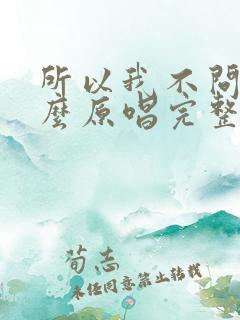 所以我不问
么原唱完整
荀志
未经同意禁止转载